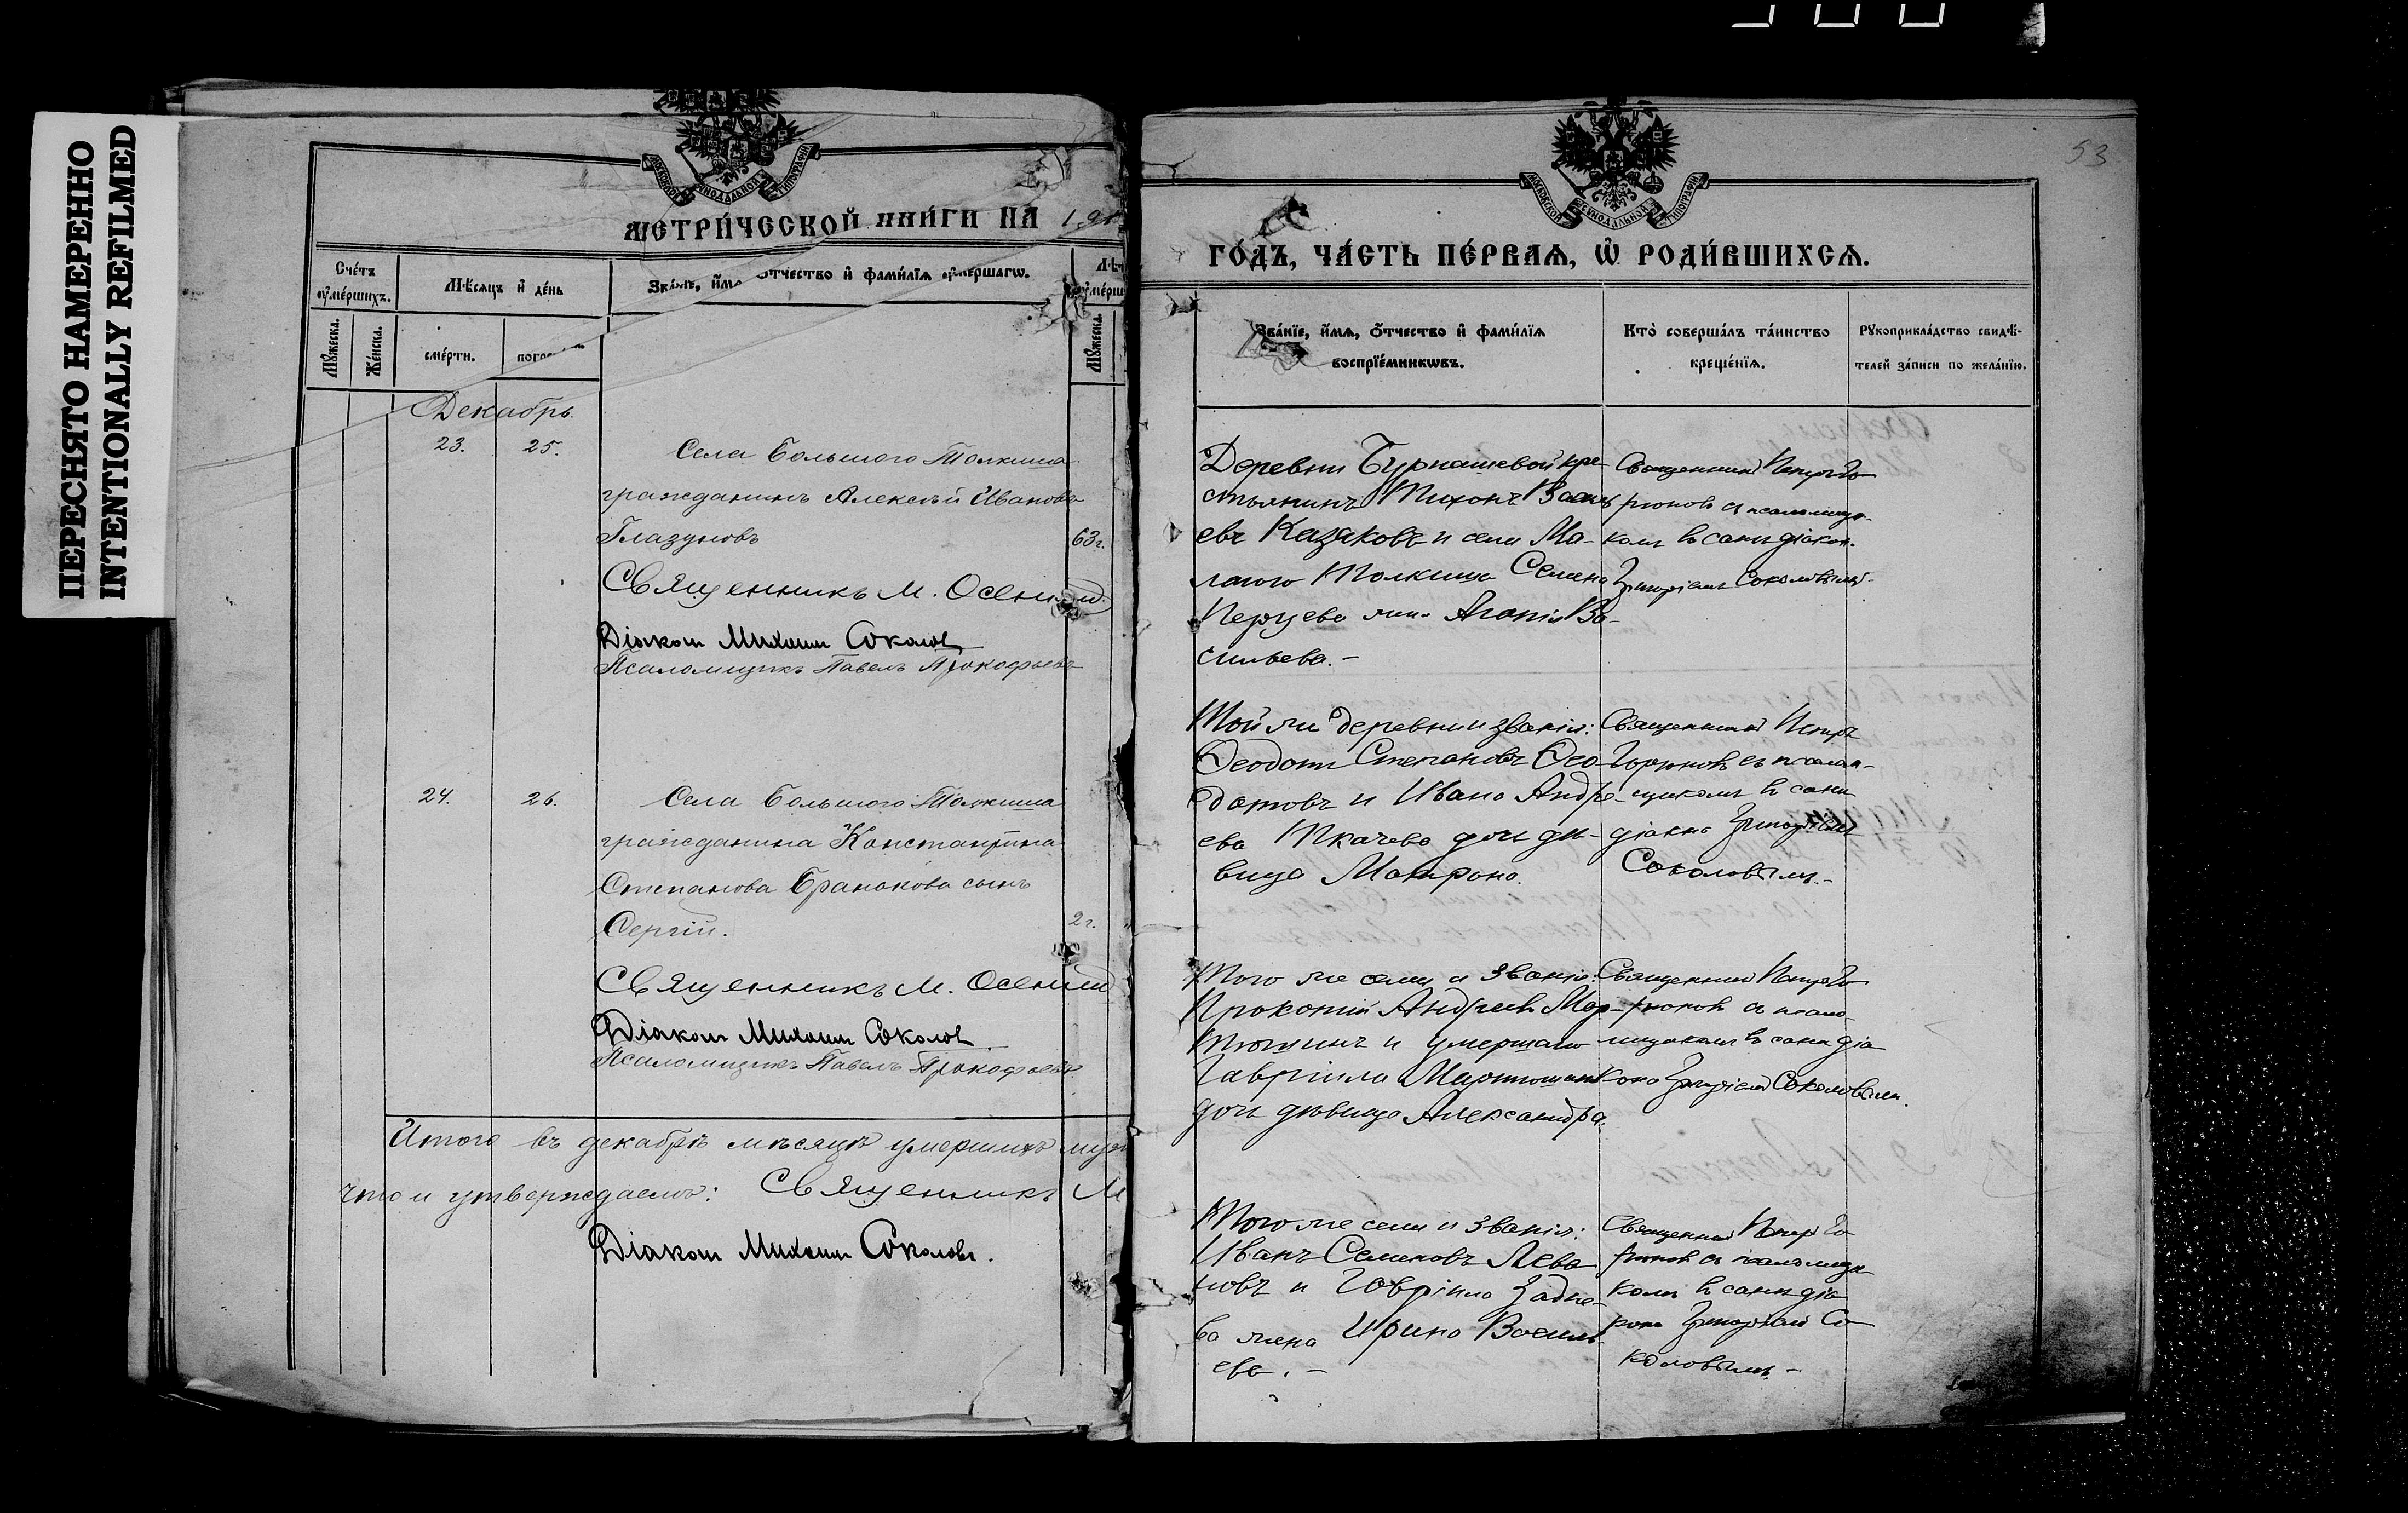 ПЕРЕСНЯТО НАМЕРЕННО
INTENTIONALLY REFILMED
МОСКОВСКОЙ СѴНОДАЛЬНОЙ ТИПОГРАФІИ
МЕТРИ́ЧЕСКОЙ КНИ́ГИ НА 191
Сче́тъ ѹме́ршихъ.
Мѣ́сяцъ и де́нь
Зва́нїе, и҆́мѧ ѻ҆́тчество и҆ фами́лїѧ ѹме́ршагѡ.
Мꙋ́жеска.
Же́нска.
сме́рти.
Мꙋ́жеска.
Декабрь
23. 25. Села Большого Толкиша
гражданинъ Алексѣй Ивановъ
Глазуновъ 63г.
Священникъ М. Осенній
Діаконъ Михаилъ Соколовъ
Псаломщикъ Павелъ Прокофьевъ
24. 26. Села Большого Толкиша
гражданина Константина
Степанова сынъ
Сергій. 2г.
Священникъ М. Осенній
Діаконъ Михаилъ Соколовъ.
Псаломщикъ Павелъ Прокофьевъ
Итого въ декабрѣ мѣсяцѣ умершихъ муж
что и утверждаемъ: Священникъ М
Діаконъ Михаилъ Соколовъ.
53
МОСКОВСКОЙ СѴНОДАЛЬНОЙ ТИПОГРАФІИ
ГО́ДЪ, ЧА́СТЬ ПЕ́РВАѦ, Ѡ҆ РОДИ́ВШИХСѦ.
Зва́нїе, и҆́мѧ, ѻ҆́тчество и҆ фами́лїѧ воспрїе́мникѡвъ.
Кто̀ соверша́лъ та́инство креще́нїѧ.
Рꙋкоприкла́дство свидѣ́телей за́писи по жела́нїю.
Деревни Бурнашевой кре-
стьянинъ Тихонъ Василь
евъ Казаковъ и села Ма-
лаго Толкиша Семена
Перцева жена Агапія Ва-
сильева.-
Священникъ Петръ Го
рюновъ съ псаломщи-
комъ въ санѣ діакон.
Григоріемъ Соколовымъ.
Той же деревни и званія:
Ѳеодотъ Степановъ Ѳео-
дотовъ и Ивана Андре-
ева Ткачева дочь дѣ-
вица Матрона.
Священникъ Петръ
Горюновъ съ псалом-
щикомъ въ санѣ
діакона Григоріемъ
Соколовымъ.-
Того же села и званія:
Прокопій Андреевъ Мар-
тюшинъ и умершаго
Гавріила Мартюшина
дочь дѣвица Александра.
Священникъ Петръ Го
рюновъ съ псалом
щикомъ въ санѣ діа
кона Григоріемъ Соколовымъ.
Того же села и званія:
Иванъ Семеновъ Лева
новъ и Гавріила Задне-
ва жена Ирина Василь-
ева.-
Священникъ Петръ Го
рюновъ съ псаломщи
комъ въ санѣ діа
кона Григоріемъ Со
коловымъ.-